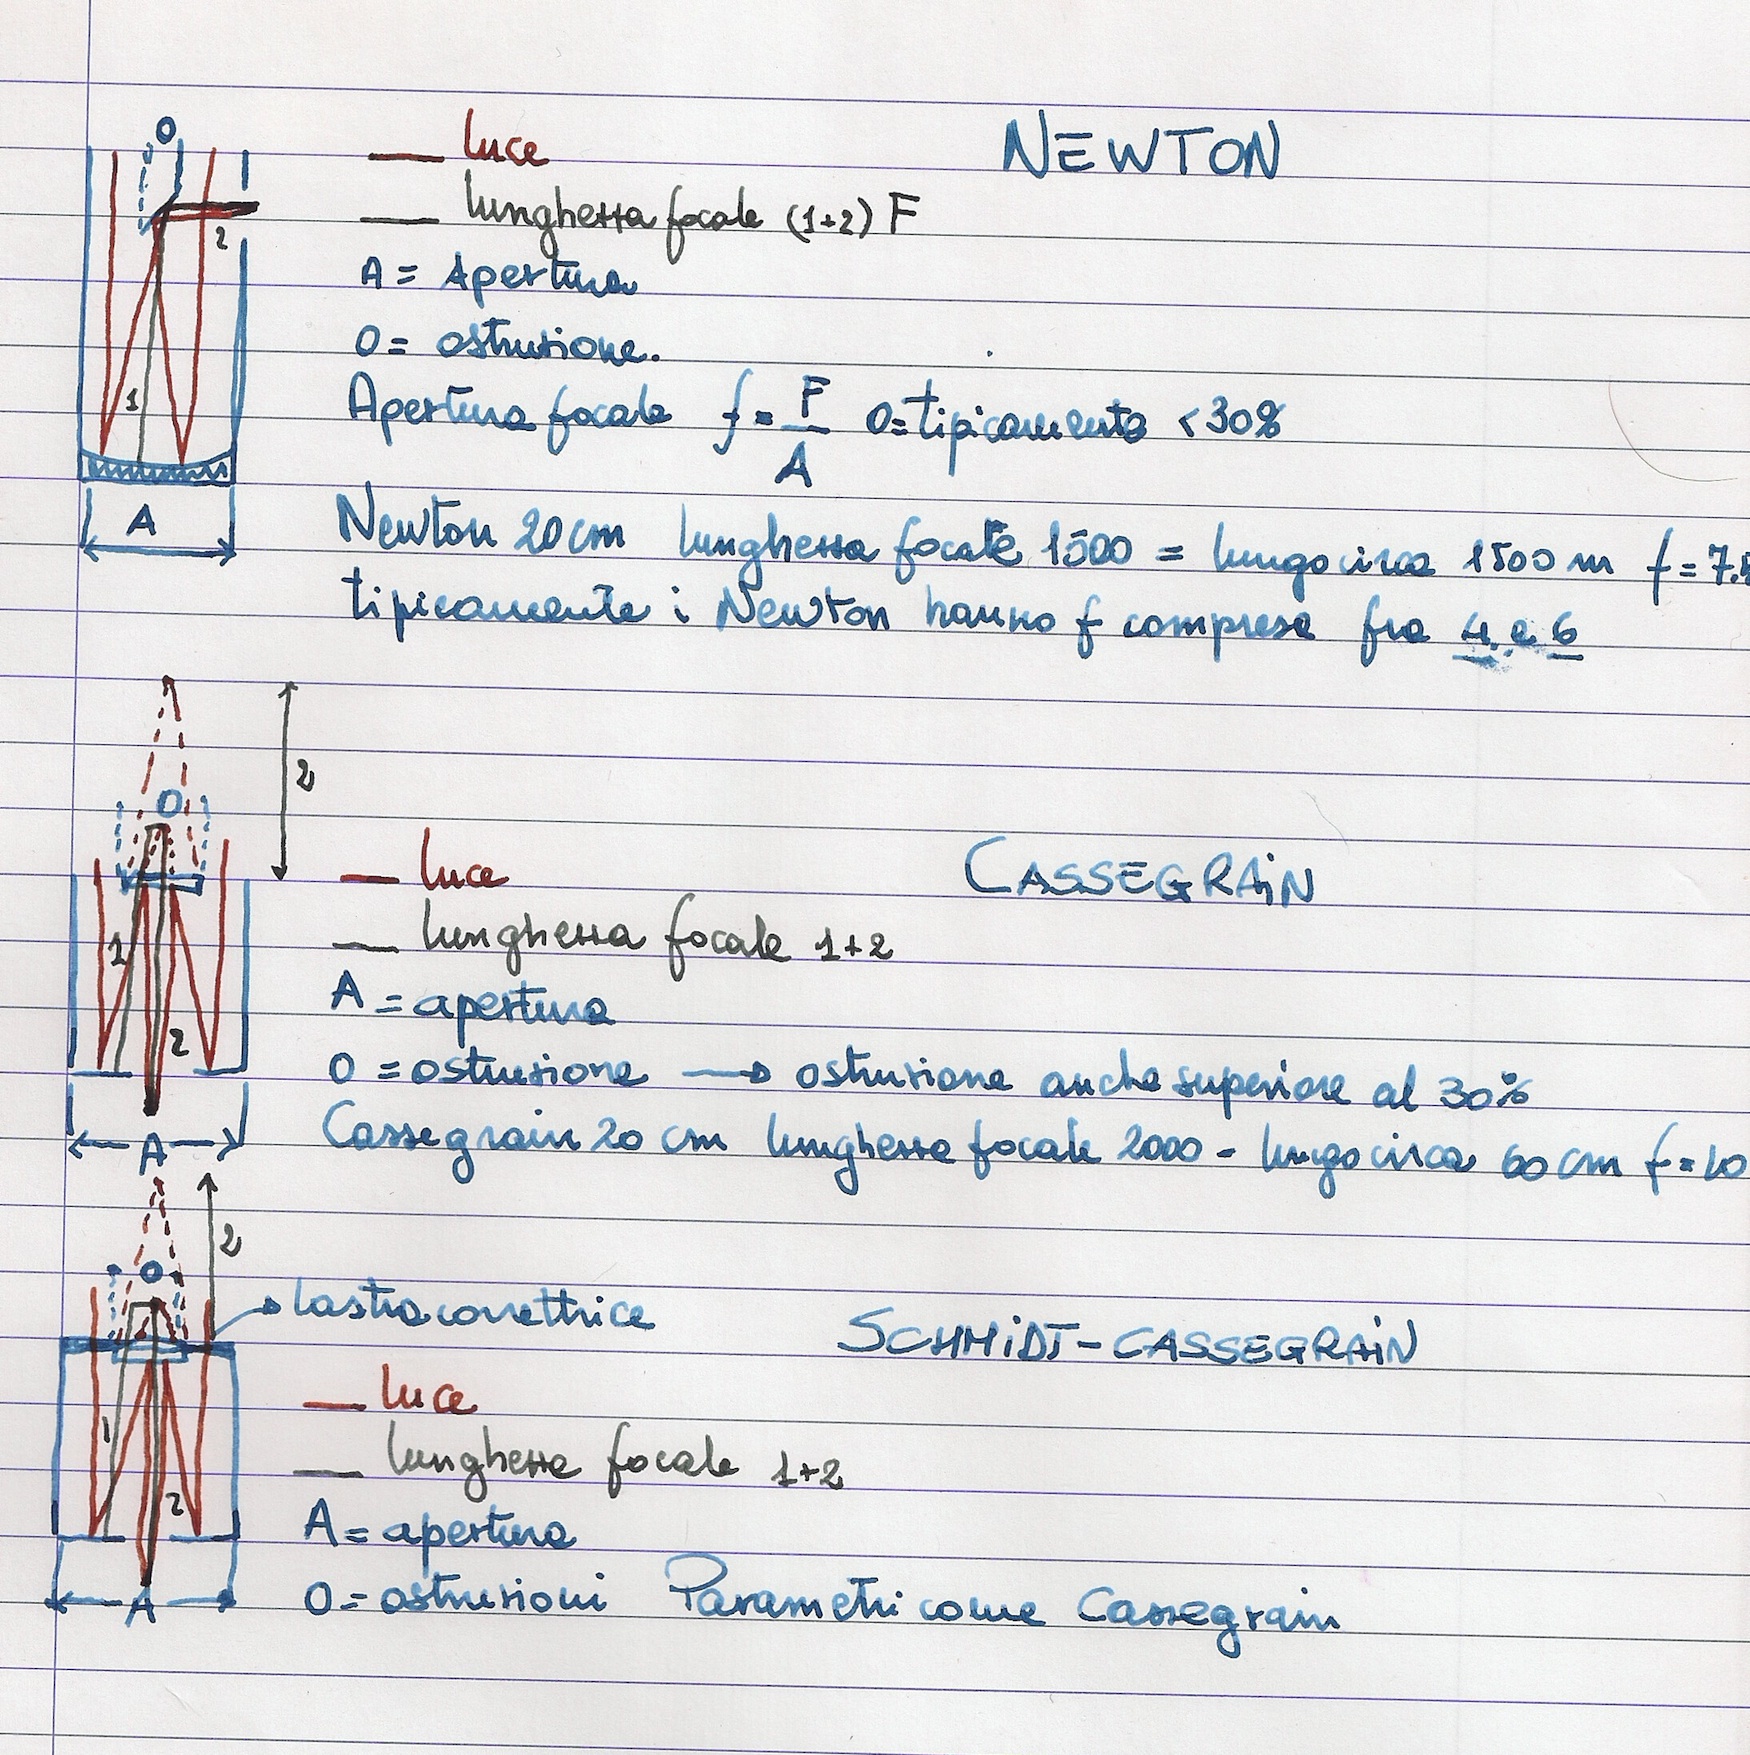 O
luce
NEWTON
lunghezza focale (1+2) F
2
A = Apertura
O = ostruzione.
1
Apertura focale f = F/A O = tipicamente < 30%
A
Newton 20 cm lunghezza focale 1500 = lungo circa 1500 m f = 7.5
tipicamente i Newton hanno f comprese fra 4 e 6
2
O
luce
CASSEGRAIN
1
lunghezza focale 1+2
A = apertura
2
O = ostruzione → ostruzione anche superiore al 30%
Cassegrain 20 cm lunghezza focale 2000 - lungo circa 60 cm f = 10
A
2
O
Lastra correttrice
SCHMIDT-CASSEGRAIN
luce
1
lunghezza focale 1+2
2
A = apertura
A
O = ostruzioni Parametri come Cassegrain